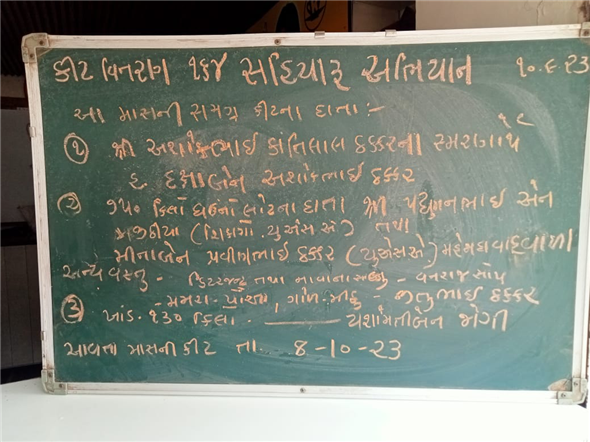 કીટ વિતરણ ૧૬૪ સહિયારૂ અભિયાન ૧૦.૯.23
આ માસની સમગ્ર કીટના દાતા :-
① શ્રી અશોકભાઈ કાંતિલાલ ઠક્કરના સ્મરણાર્થે
હ. દક્ષાબેન અશોકભાઈ ઠક્કર
② ૭૫૦ કિલો ઘઉંનો લોટના દાતા શ્રી પદ્યુમનભાઈ એન
(શિકાગો યુ.એસ.એ) તથા
મીનાબેન પ્રવીણભાઈ ઠક્કર (યુએસએ) મહેસાણાવાળા
અન્ય વસ્તુ - ડિટરજન્ટ તથા નાવાના સાબુ - વનરાજ સોપ
- મમરા - પૌંઆ, ગોળ મીઠું - જીતુભાઈ ઠક્કર
③ ખાંડ - ૧૩૦ કિલો. —— યશોમતીબેન જોગી
આવતા માસની કીટ તા. 8-10-23